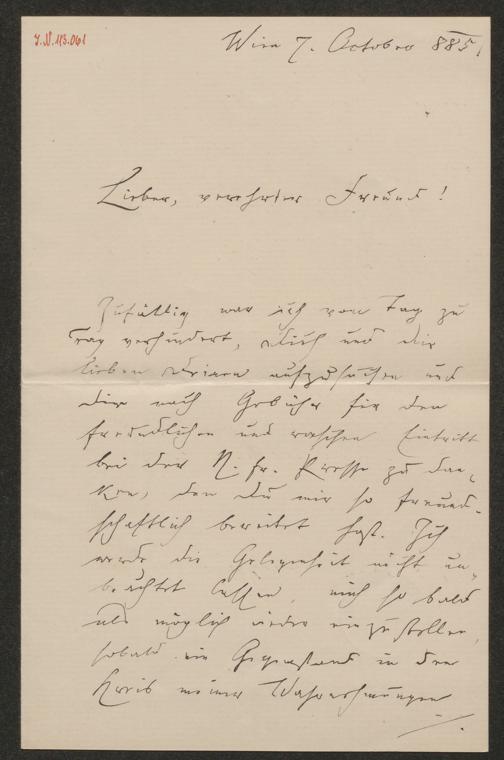 I.N. 113.061
Wien 7. Octobro 885
Lieber, verehrter Freund!
Zufällig war ich von Tag zu
Tag verhindert, Dich und die
lieben Deinen aufzusuchen und
Dir nach Gebühr für den
freundlichen und raschen Eintritt
bei der N. fr. Presse zu dan-
ken, den Du mir so freund-
schaftlich bereitet hast. Ich
werde die Gelegenheit nicht un-
beachtet lassen, mich so bald
als möglich wieder einzustellen,
sobald ein Gegenstand in den
Kreis meiner Wahrnehmungen